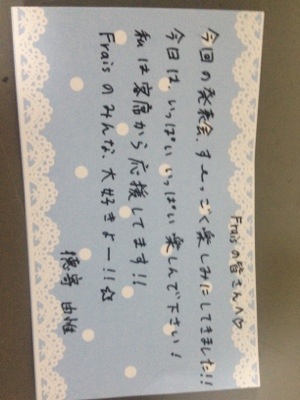 Fraisの皆さんへ♡
今回の発表会、すーっごく楽しみにしてきました!!
今日は、いっぱいいっぱい楽しんで下さい!
私は客席から応援してます!!
Fraisのみんな、大好きよー!!☆
徳寄 由惟